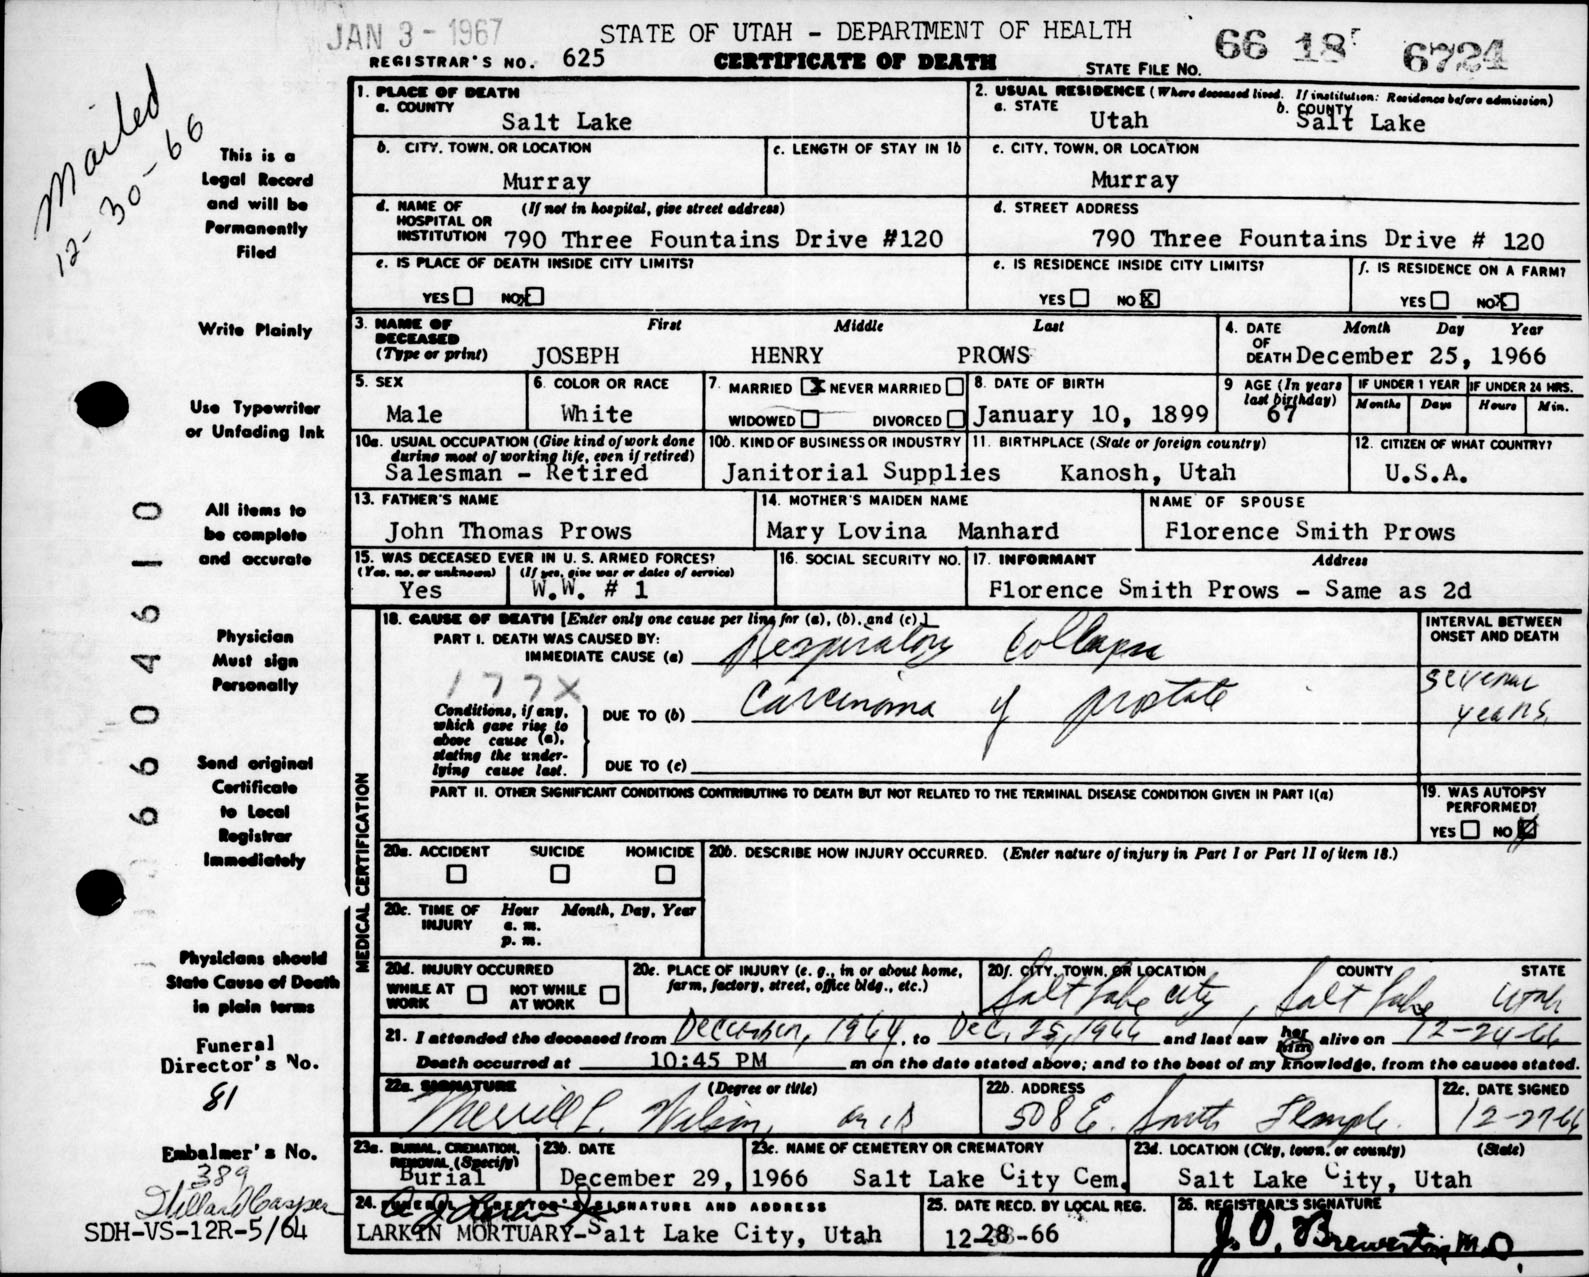 JAN 3 - 1967
STATE OF UTAH - DEPARTMENT OF HEALTH
66 18 6724
REGISTRAR'S NO. 625
CERTIFICATE OF DEATH
STATE FILE NO.
Mailed
12-30-66
This is a
Legal Record
and will be
Permanently
Filed
Write Plainly
Use Typewriter
or Unfading Ink
All items to
be complete
and accurate
Physician
Must sign
Personally
Send original
Certificate
to Local
Registrar
Immediately
Physicians should
State Cause of Death
in plain terms
Funeral
Director's No.
81
Embalmer's No.
389
SDH-VS-12R-5/64
6604610
1. PLACE OF DEATH
a. COUNTY
Salt Lake
2. USUAL RESIDENCE (Where deceased lived. If institution: Residence before admission)
a. STATE
Utah
b. COUNTY
Salt Lake
b. CITY, TOWN, OR LOCATION
Murray
c. LENGTH OF STAY IN 1b
c. CITY, TOWN, OR LOCATION
Murray
d. NAME OF HOSPITAL OR INSTITUTION (If not in hospital, give street address)
790 Three Fountains Drive #120
d. STREET ADDRESS
790 Three Fountains Drive # 120
e. IS PLACE OF DEATH INSIDE CITY LIMITS?
YES NO X
e. IS RESIDENCE INSIDE CITY LIMITS?
YES NO X
f. IS RESIDENCE ON A FARM?
YES NO X
3. NAME OF DECEASED (Type or print)
First Middle Last
JOSEPH HENRY PROWS
4. DATE OF DEATH
Month Day Year
December 25, 1966
5. SEX
Male
6. COLOR OR RACE
White
7. MARRIED X NEVER MARRIED
WIDOWED DIVORCED
8. DATE OF BIRTH
January 10, 1899
9 AGE (In years last birthday)
67
IF UNDER 1 YEAR
Months Days
IF UNDER 24 HRS.
Hours Min.
10a. USUAL OCCUPATION (Give kind of work done during most of working life, even if retired)
Salesman - Retired
10b. KIND OF BUSINESS OR INDUSTRY
Janitorial Supplies
11. BIRTHPLACE (State or foreign country)
Kanosh, Utah
12. CITIZEN OF WHAT COUNTRY?
U.S.A.
13. FATHER'S NAME
John Thomas Prows
14. MOTHER'S MAIDEN NAME
Mary Lovina Manhard
NAME OF SPOUSE
Florence Smith Prows
15. WAS DECEASED EVER IN U. S. ARMED FORCES?
(Yes, no, or unknown) (If yes, give war or dates of service)
Yes W.W. # 1
16. SOCIAL SECURITY NO.
17. INFORMANT Address
Florence Smith Prows - Same as 2d
MEDICAL CERTIFICATION
18. CAUSE OF DEATH [Enter only one cause per line for (a), (b), and (c).]
PART I. DEATH WAS CAUSED BY:
IMMEDIATE CAUSE (a) Respiratory Collapse
177X
Conditions, if any, which gave rise to above cause (a), stating the underlying cause last.
DUE TO (b) Carcinoma of prostate
DUE TO (c)
INTERVAL BETWEEN ONSET AND DEATH
several years
PART II. OTHER SIGNIFICANT CONDITIONS CONTRIBUTING TO DEATH BUT NOT RELATED TO THE TERMINAL DISEASE CONDITION GIVEN IN PART I(a)
19. WAS AUTOPSY PERFORMED?
YES NO X
20a. ACCIDENT SUICIDE HOMICIDE
20b. DESCRIBE HOW INJURY OCCURRED. (Enter nature of injury in Part I or Part II of item 18.)
20c. TIME OF INJURY
Hour Month, Day, Year
a. m.
p. m.
20d. INJURY OCCURRED
WHILE AT WORK NOT WHILE AT WORK
20e. PLACE OF INJURY (e. g., in or about home, farm, factory, street, office bldg., etc.)
20f. CITY, TOWN, OR LOCATION COUNTY STATE
Salt Lake City, Salt Lake Utah
21. I attended the deceased from December, 1964, to Dec. 25, 1966 and last saw her him alive on 12-24-66
Death occurred at 10:45 PM m on the date stated above; and to the best of my knowledge, from the causes stated.
22a. SIGNATURE (Degree or title)
Merrill L. Wilson, M.D
22b. ADDRESS
508 E. South Temple.
22c. DATE SIGNED
12-27-66
23a. BURIAL, CREMATION, REMOVAL (Specify)
Burial
23b. DATE
December 29, 1966
23c. NAME OF CEMETERY OR CREMATORY
Salt Lake City Cem.
23d. LOCATION (City, town, or county) (State)
Salt Lake City, Utah
24. FUNERAL DIRECTOR'S SIGNATURE AND ADDRESS
LARKIN MORTUARY-Salt Lake City, Utah
25. DATE RECD. BY LOCAL REG.
12-28-66
26. REGISTRAR'S SIGNATURE
J. O. Brewerton, M.D.